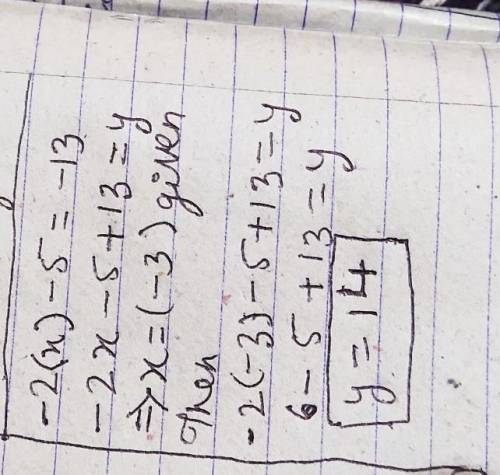 -2(x) - 5 = -13
-2x - 5 + 13 = y
⇒ x = (-3) given
Then
-2(-3) - 5 + 13 = y
6 - 5 + 13 = y
y = 14